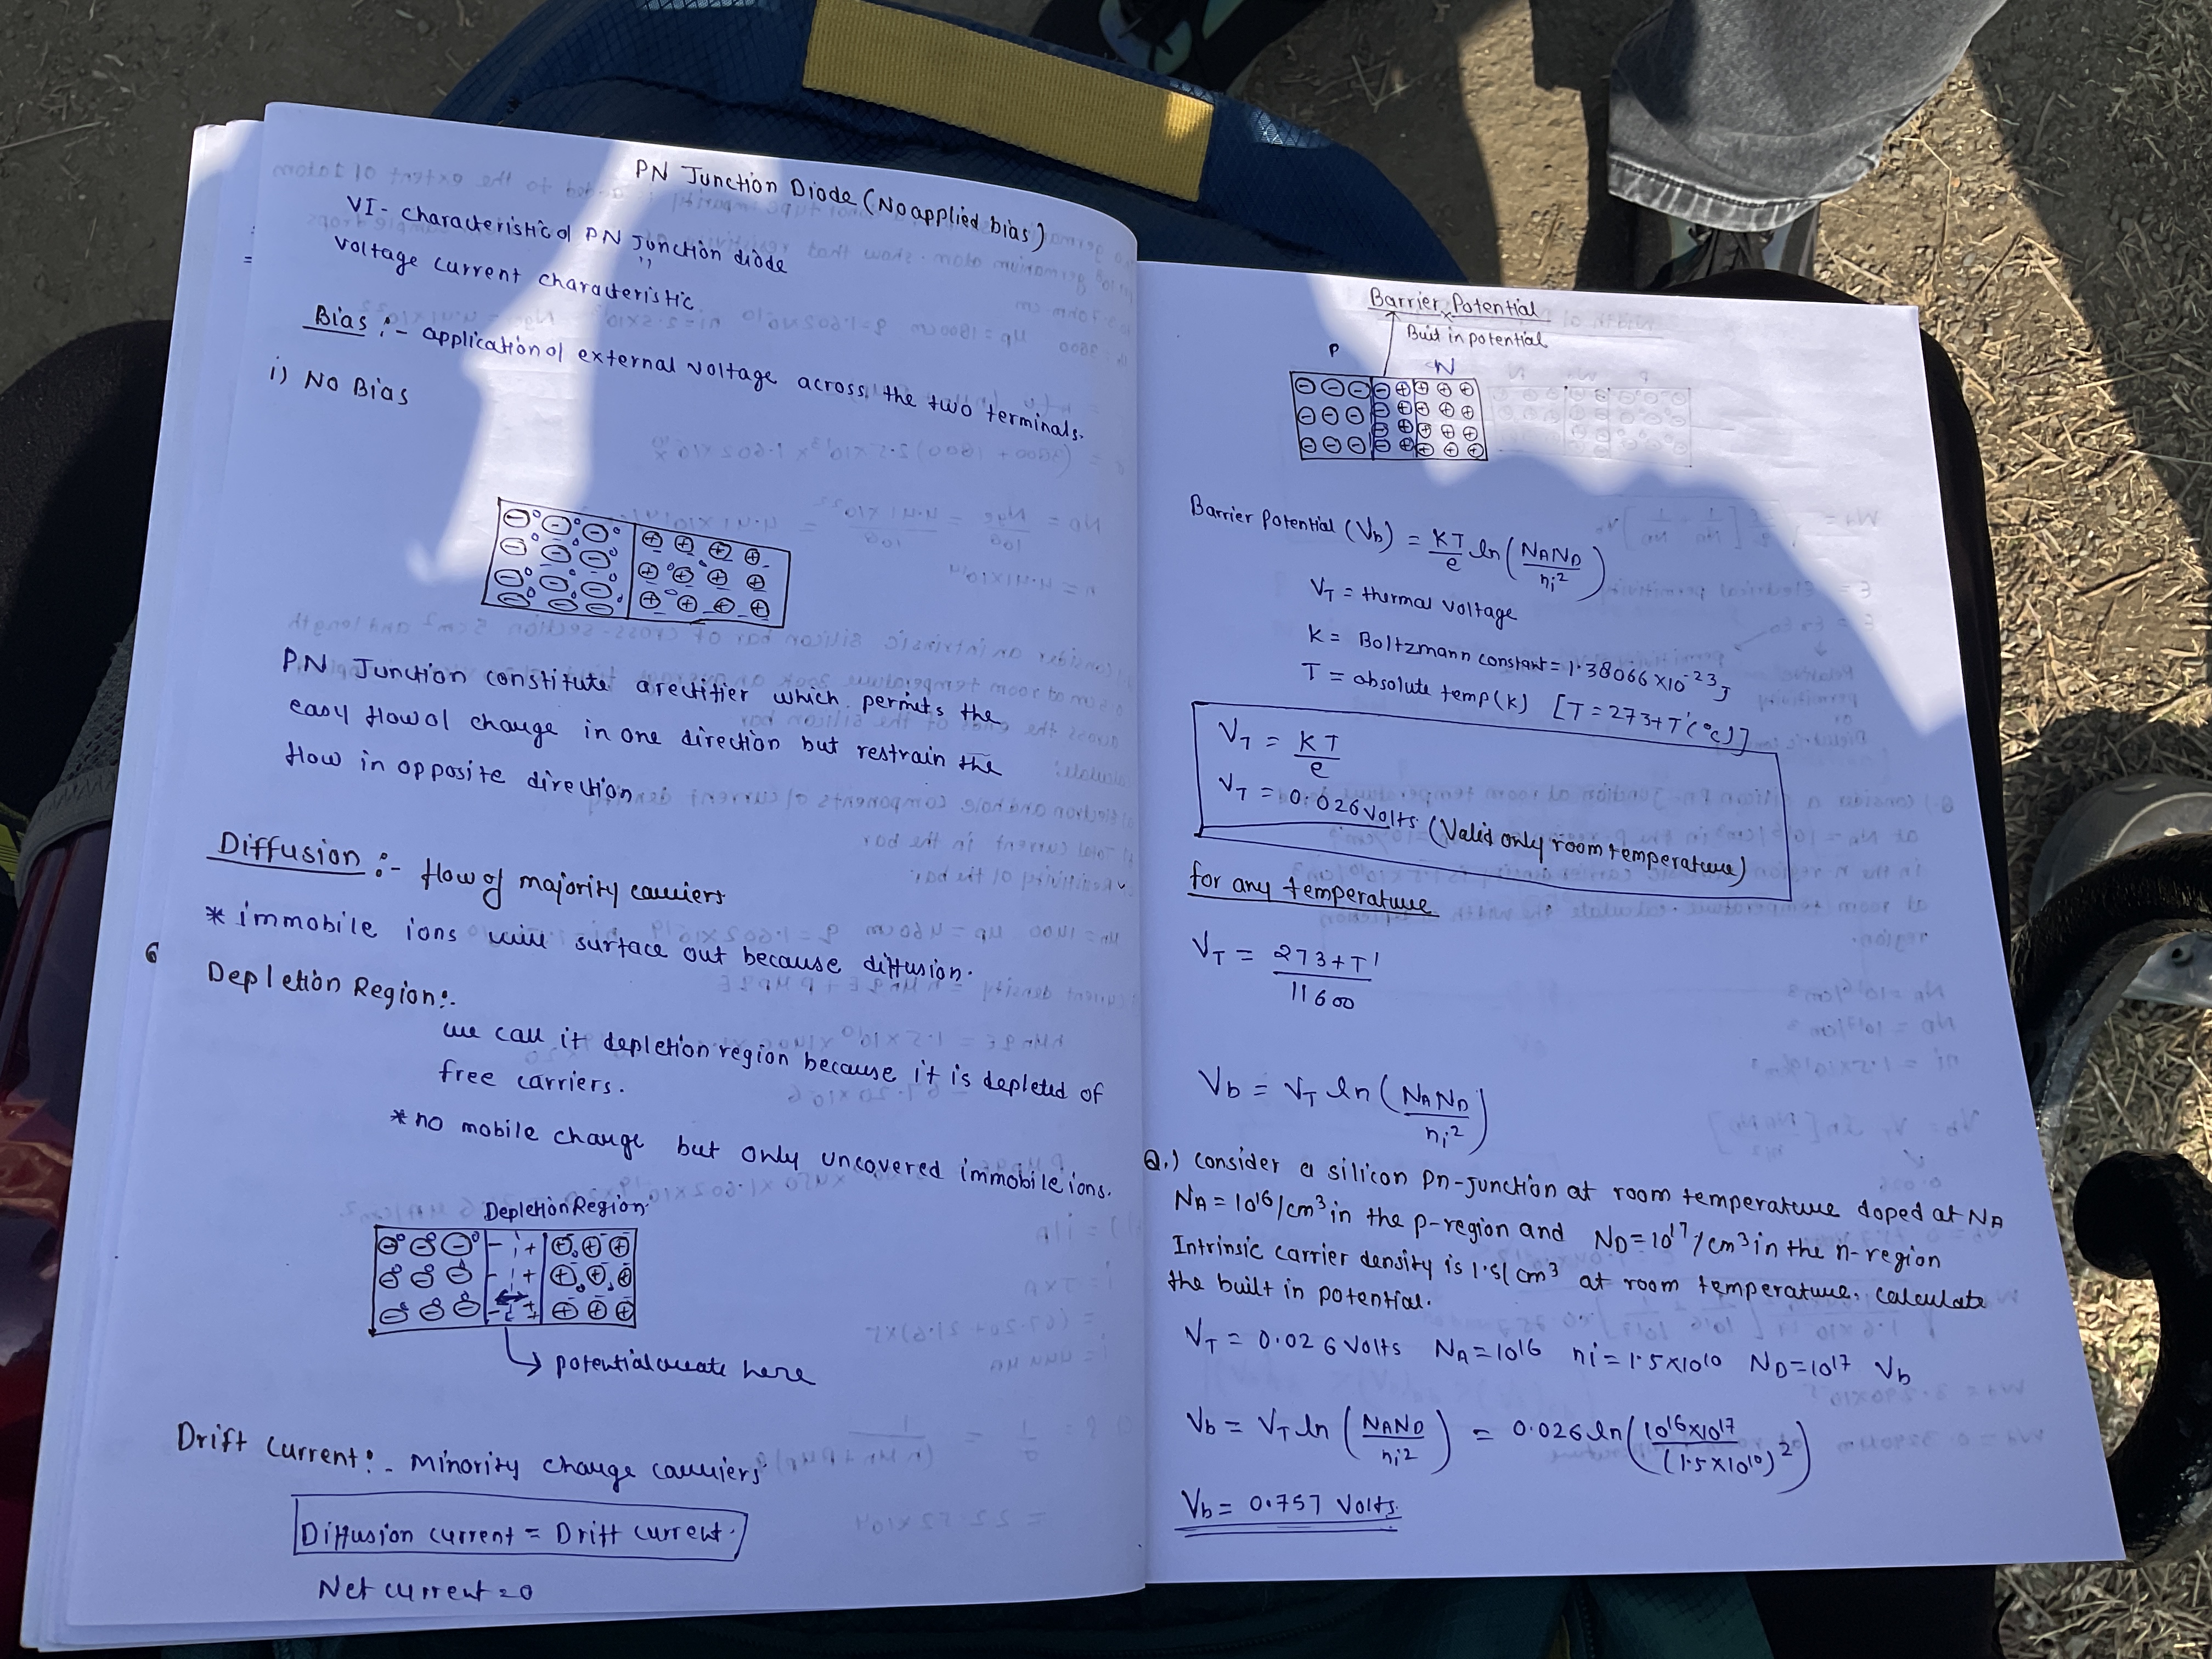 PN Junction Diode (No applied bias)
VI - characteristic of PN Junction diode
"
Voltage current characteristic
Bias :- application of external voltage across the two terminals.
i) No Bias
PN Junction constitute a rectifier which permits the
easy flow of charge in one direction but restrain the
flow in opposite direction
Diffusion :- flow of majority carriers
* immobile ions will surface out because diffusion.
6
Depletion Region:-
we call it depletion region because it is depleted of
free carriers.
* no mobile charge but only uncovered immobile ions.
Depletion Region
potential create here
Drift current:- Minority charge carriers
Diffusion current = Drift current.
Net current = 0
Barrier Potential
Built in potential
P N
Barrier Potential (Vb) = KT/e ln (NAND/ni²)
VT = thermal voltage
K = Boltzmann constant = 1.38066 × 10⁻²³ J
T = absolute temp (k) [T = 273 + T'(°c)]
VT = KT/e
VT = 0.026 volts (Valid only room temperature)
for any temperature
VT = 273 + T'/11600
Vb = VT ln (NAND/ni²)
Q.) consider a silicon pn-junction at room temperature doped at NA
NA = 10¹⁶/cm³ in the p-region and ND = 10¹⁷/cm³ in the n-region
Intrinsic carrier density is 1.5/cm³ at room temperature. calculate
the built in potential.
VT = 0.026 Volts NA = 10¹⁶ ni = 1.5×10¹⁰ ND = 10¹⁷ Vb
Vb = VT ln (NAND/ni²) = 0.026 ln (10¹⁶×10¹⁷/(1.5×10¹⁰)²)
Vb = 0.757 Volts